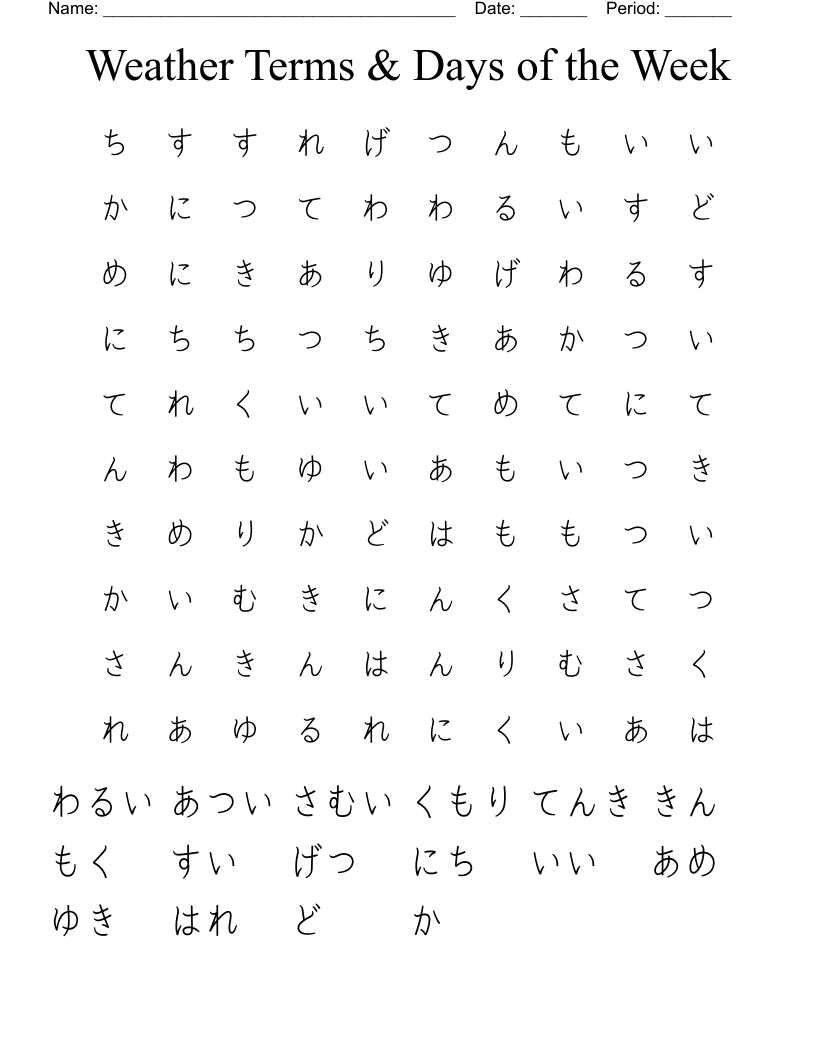 Name: _____________________________________ Date: _______ Period: _______
Weather Terms & Days of the Week
ち す す れ げ つ ん も い い
か に つ て わ わ る い す ど
め に き あ り ゆ げ わ る す
に ち ち つ ち き あ か つ い
て れ く い い て め て に て
ん わ も ゆ い あ も い つ き
き め り か ど は も も つ い
か い む き に ん く さ て つ
さ ん き ん は ん り む さ く
れ あ ゆ る れ に く い あ は
わるい あつい さむい くもり てんき きん
もく すい げつ にち いい あめ
ゆき はれ ど か